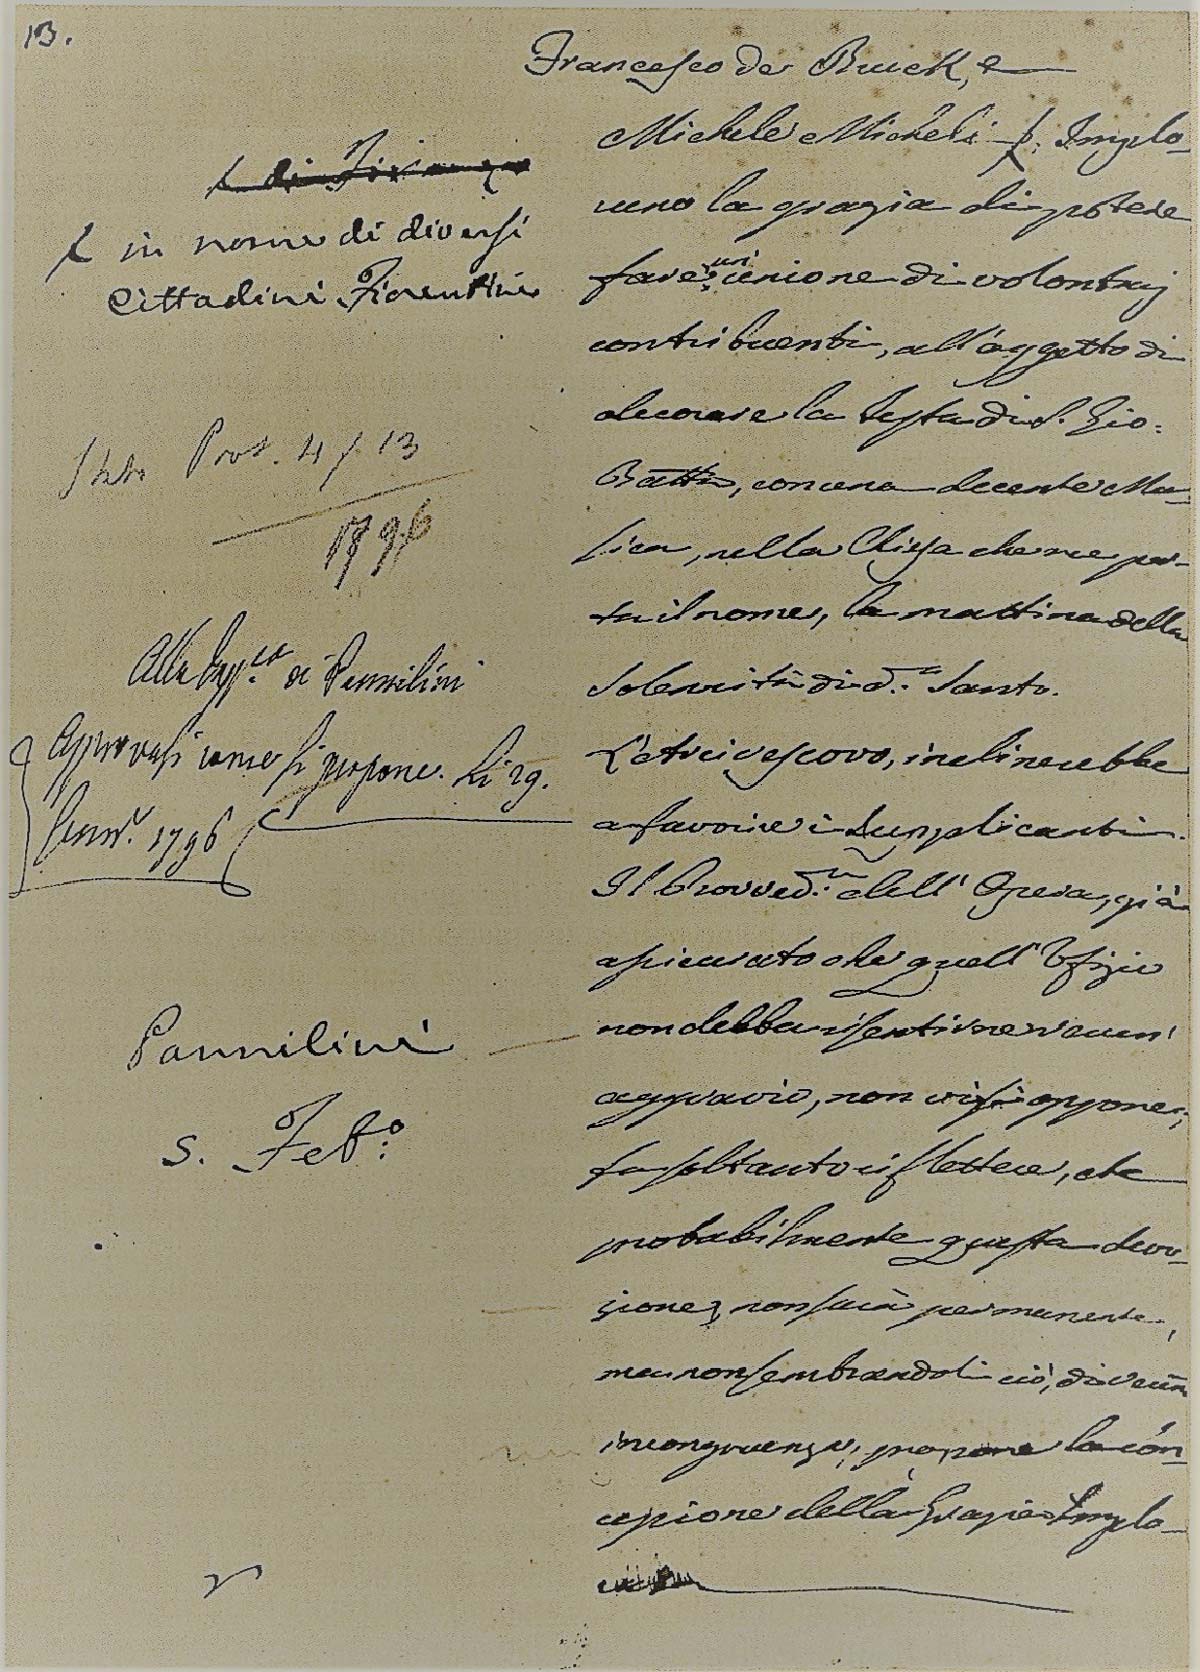 13.
Francesco de Ruick, e
Michele Micheli ƒ. Implo-
rano la grazia di potere
fare un' unione di volontarj
contribuenti, all' oggetto di
decorare la Festa di S. Gio:
Batta, con una decente Mu-
sica, nella Chiesa che ne por-
ta il nome, la mattina della
Solennità di d.º Santo.
L' Arcivescovo, inclinerebbe
a favorire i Supplicanti.
Il Provved.re dell' Opera, già
assicurato che quell' Ufizio
non debba risentirne verun'
aggravio, non vi si oppone;
fa soltanto riflettere, che
probabilmente questa devo-
zione, non sarà permanente,
ma non sembrandoli ciò, di verũn
incongruenza, propone la con-
cessione della Grazia Implo-
di Firenze
in nome di diversi
Cittadini Fiorentini
Prot. 4 / 13
1796
Alla Sup.ca di Pannilini
Approvasi come si propone. Li 29.
Genn.º 1796
Pannilini
5. Feb.º